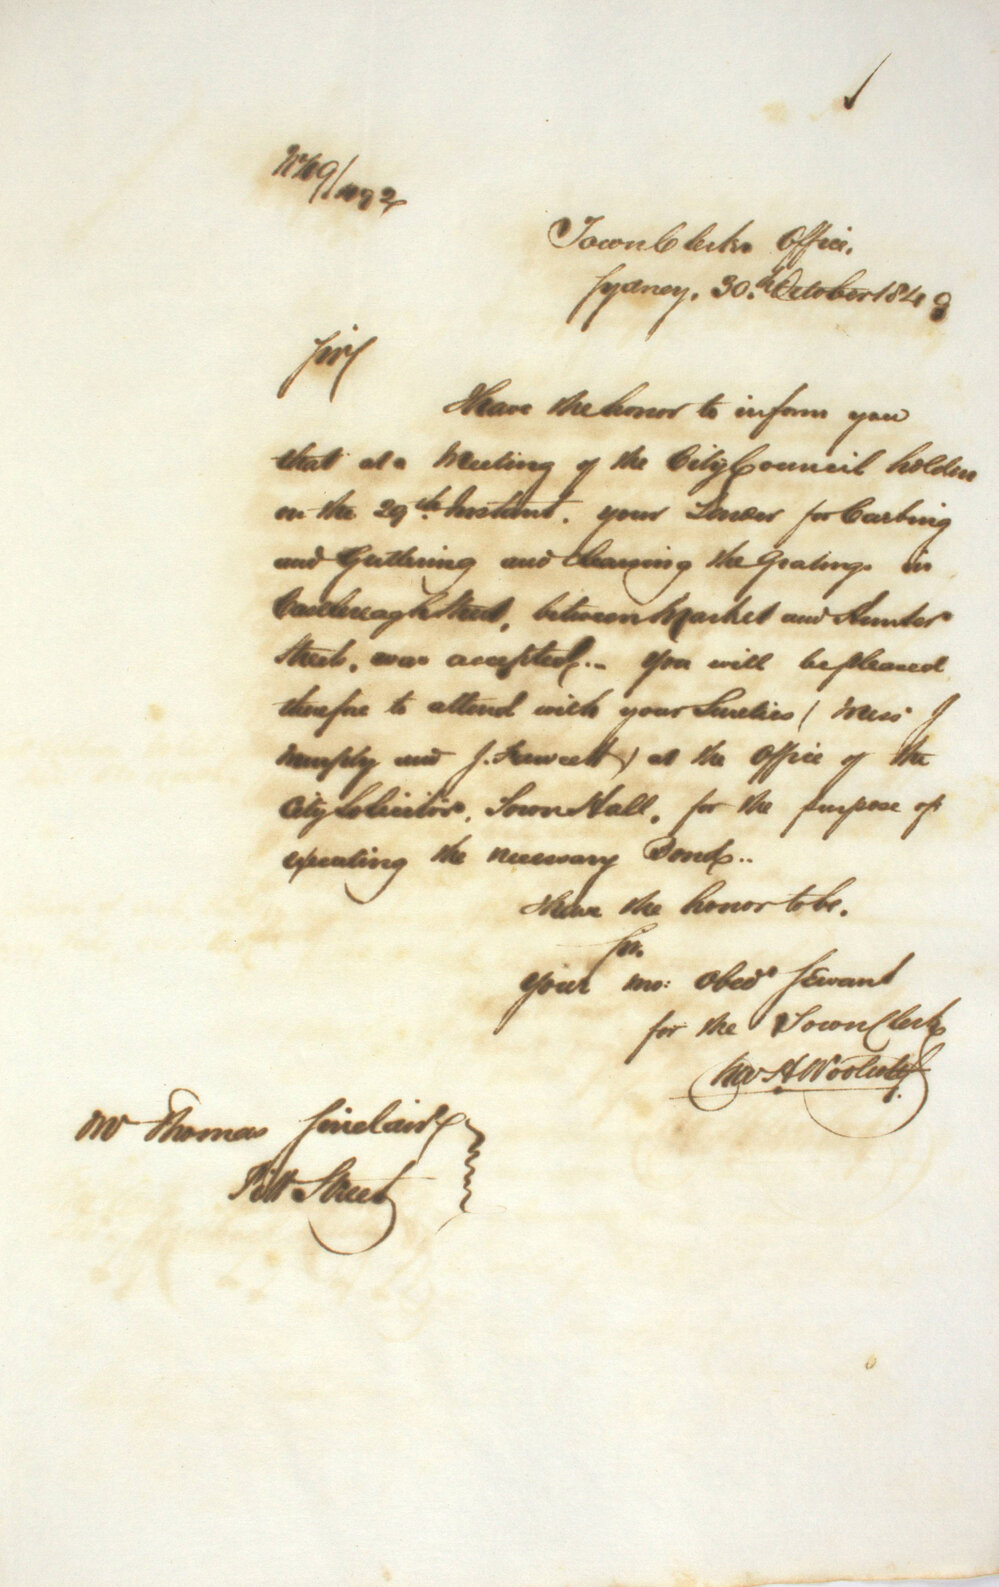 No 49/1092
Town Clerks Office,
Sydney, 30th October 1849
Sir
I have the honor to inform you
that at a Meeting of the City Council holden
on the 29th Instant, your Tender for Curbing
and Guttering and Cleansing the Gratings in
Castlereagh Street, between Market and Hunter
Streets, was accepted.. You will be pleased
therefore to attend with your Sureties (Messrs J
Murphy and J. Fawcett) at the Office of the
City Solicitor, Town Hall, for the purpose of
executing the necessary Bond..
I have the honor to be,
Sir.
Your mo: Obedt Servant
for the Town Clerk
Wm A
Mr Thomas Sinclair
Pitt Street